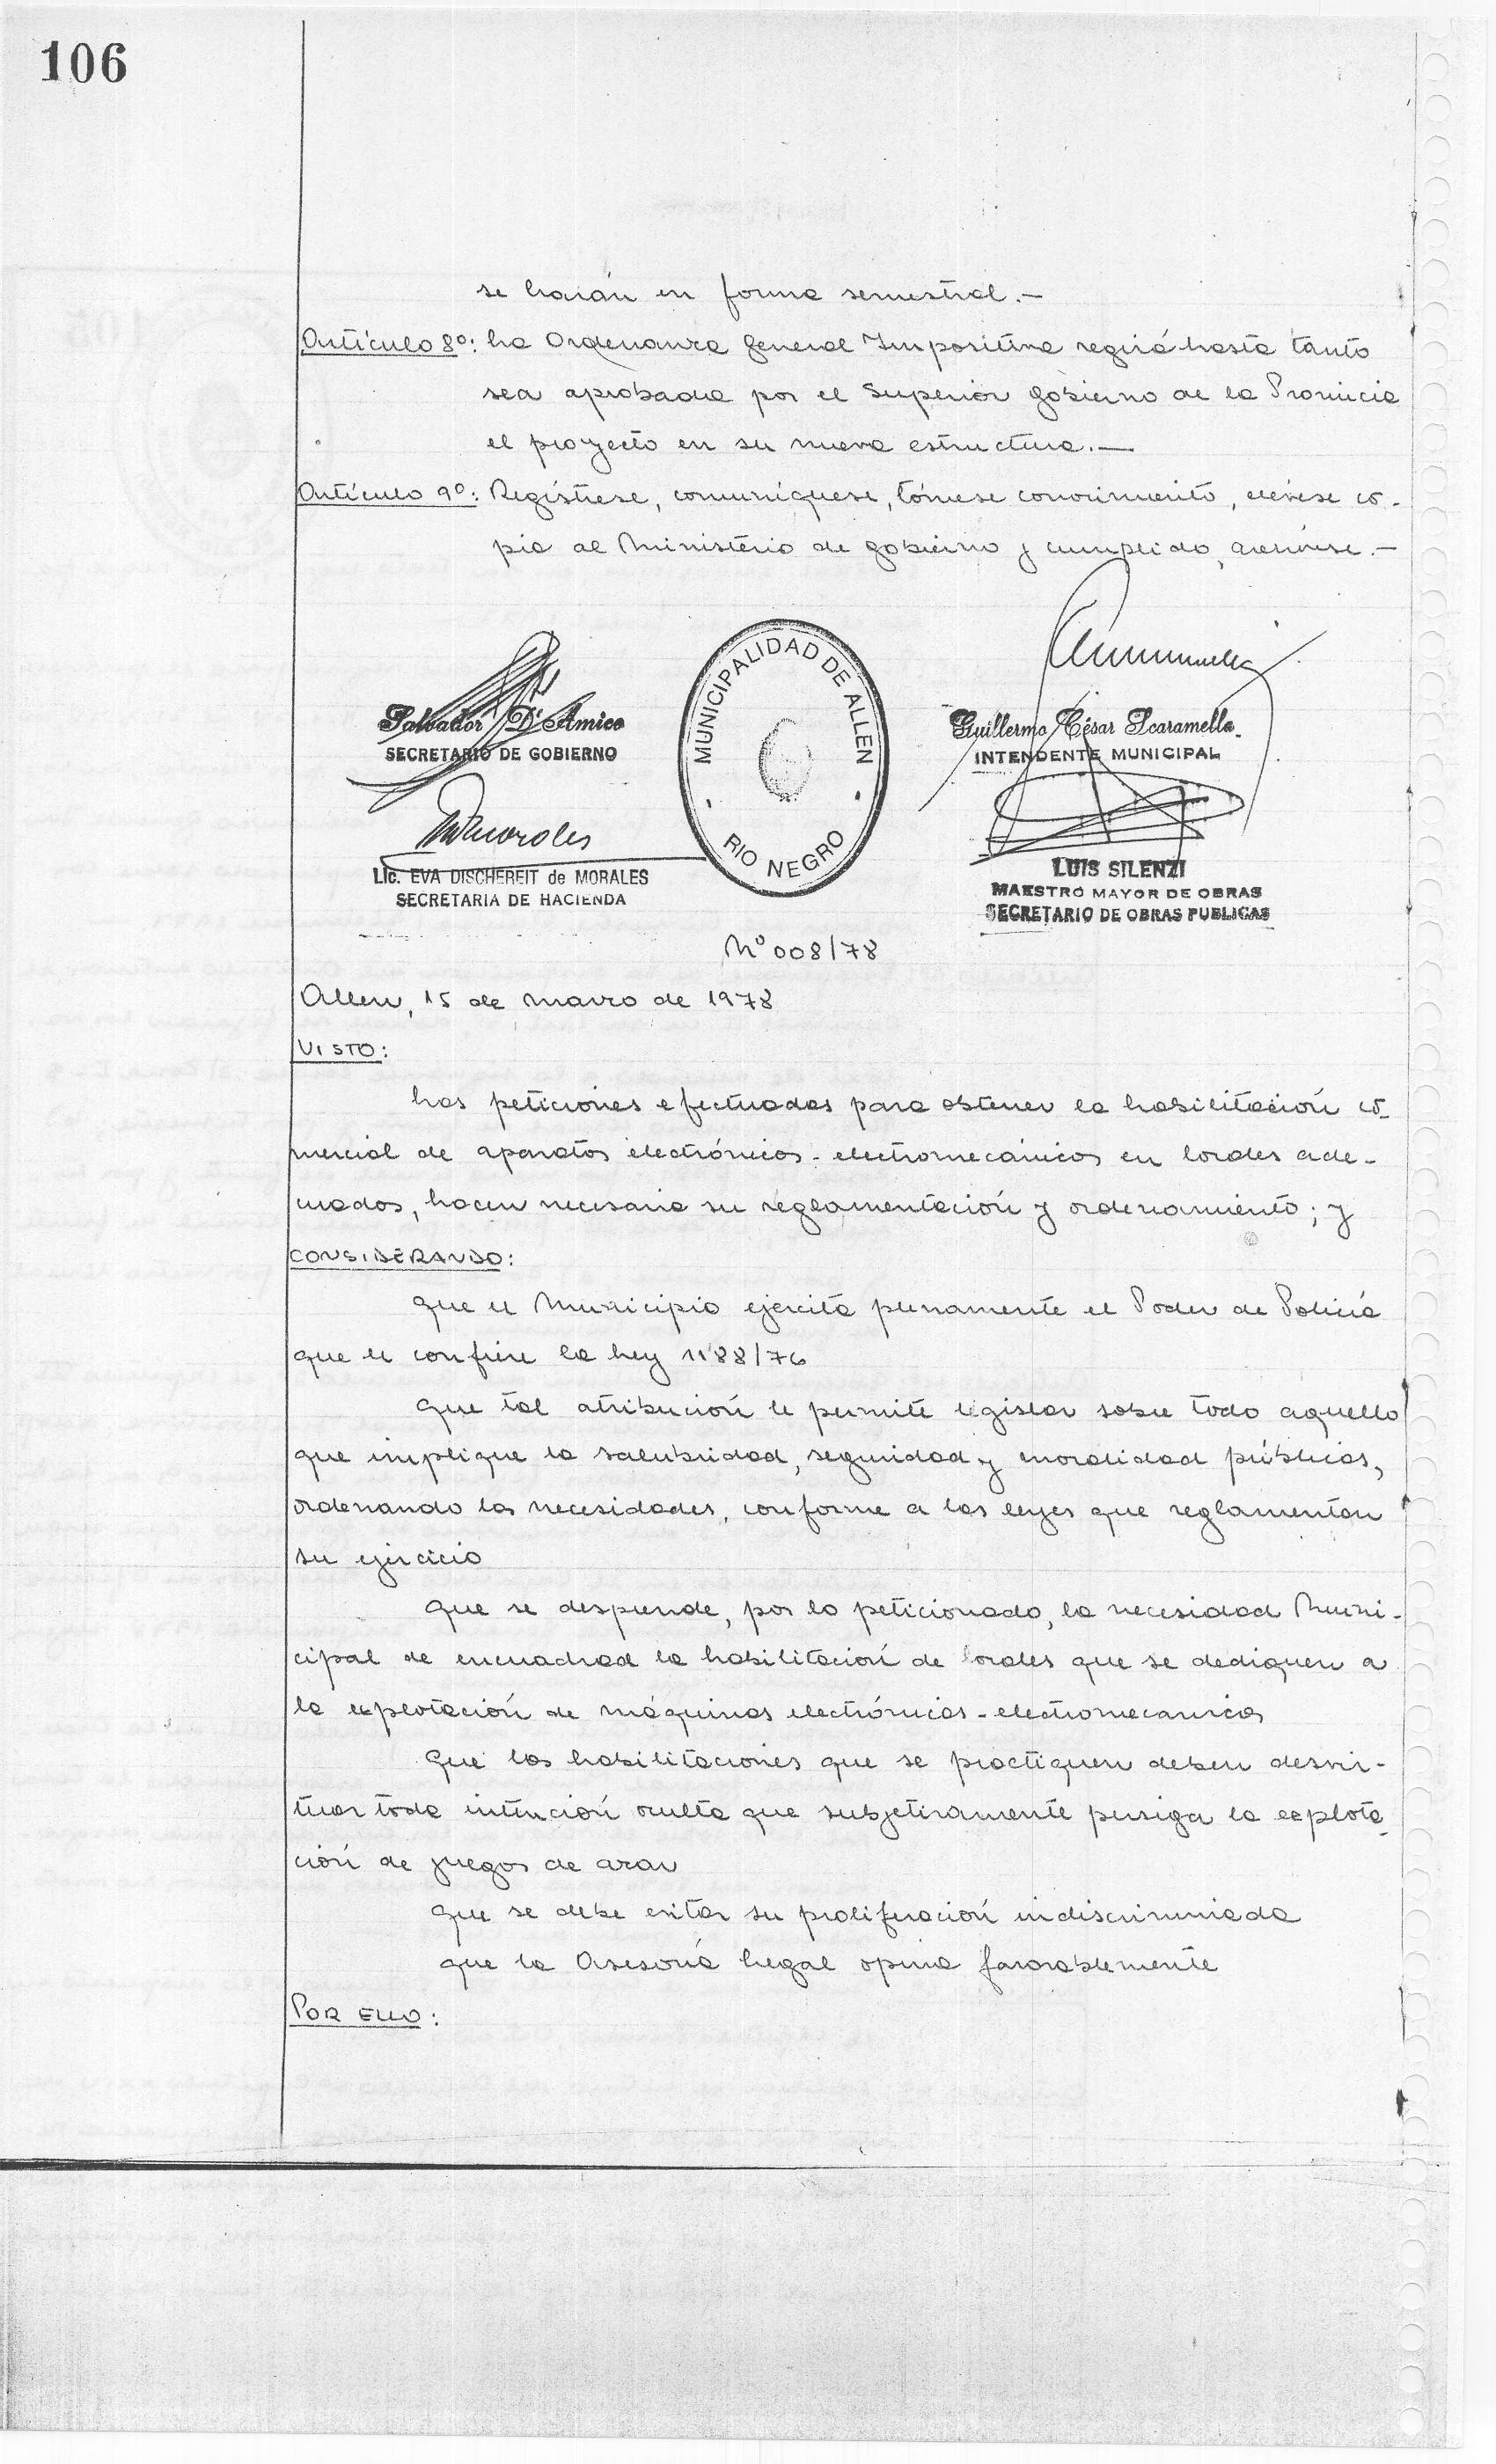 106
se harán en forma semestral.-
Artículo 8º: La Ordenanza General Impositiva regirá hasta tanto
sea aprobada por el Superior Gobierno de la Provincia
el proyecto en su nueva estructura.-
Artículo 9º: Regístrese, comuníquese, tómese conocimiento, elévese co-
pia al Ministerio de Gobierno y cumplido, archívese.-
Salvador D'Amico
SECRETARIO DE GOBIERNO
MUNICIPALIDAD DE ALLEN
RIO NEGRO
Guillermo César Scaramella
INTENDENTE MUNICIPAL
Lic. EVA DISCHEREIT de MORALES
SECRETARIA DE HACIENDA
LUIS SILENZI
MAESTRO MAYOR DE OBRAS
SECRETARIO DE OBRAS PUBLICAS
Nº 008/78
Allen, 15 de Marzo de 1978
VISTO:
Las peticiones efectuadas para obtener la habilitación co-
mercial de aparatos electrónicos-electromecánicos en locales ade-
cuados, hacen necesaria su reglamentación y ordenamiento; y
CONSIDERANDO:
Que el Municipio ejercita plenamente el Poder de Policía
que le confiere la Ley 1188/76
Que tal atribución le permite legislar sobre todo aquello
que implique la salubridad, seguridad y moralidad públicas,
ordenando las necesidades, conforme a las leyes que reglamentan
su ejercicio
Que se desprende, por lo peticionado, la necesidad Muni-
cipal de encuadrad la habilitación de locales que se dediquen a
la explotación de máquinas electrónicas-electromecanicas
Que las habilitaciones que se practiquen deben desvir-
tuar toda intención oculta que subjetivamente persiga la explota-
ción de juegos de azar
Que se debe evitar su proliferación indiscriminada
que la Asesoría Legal opina favorablemente
POR ELLO: